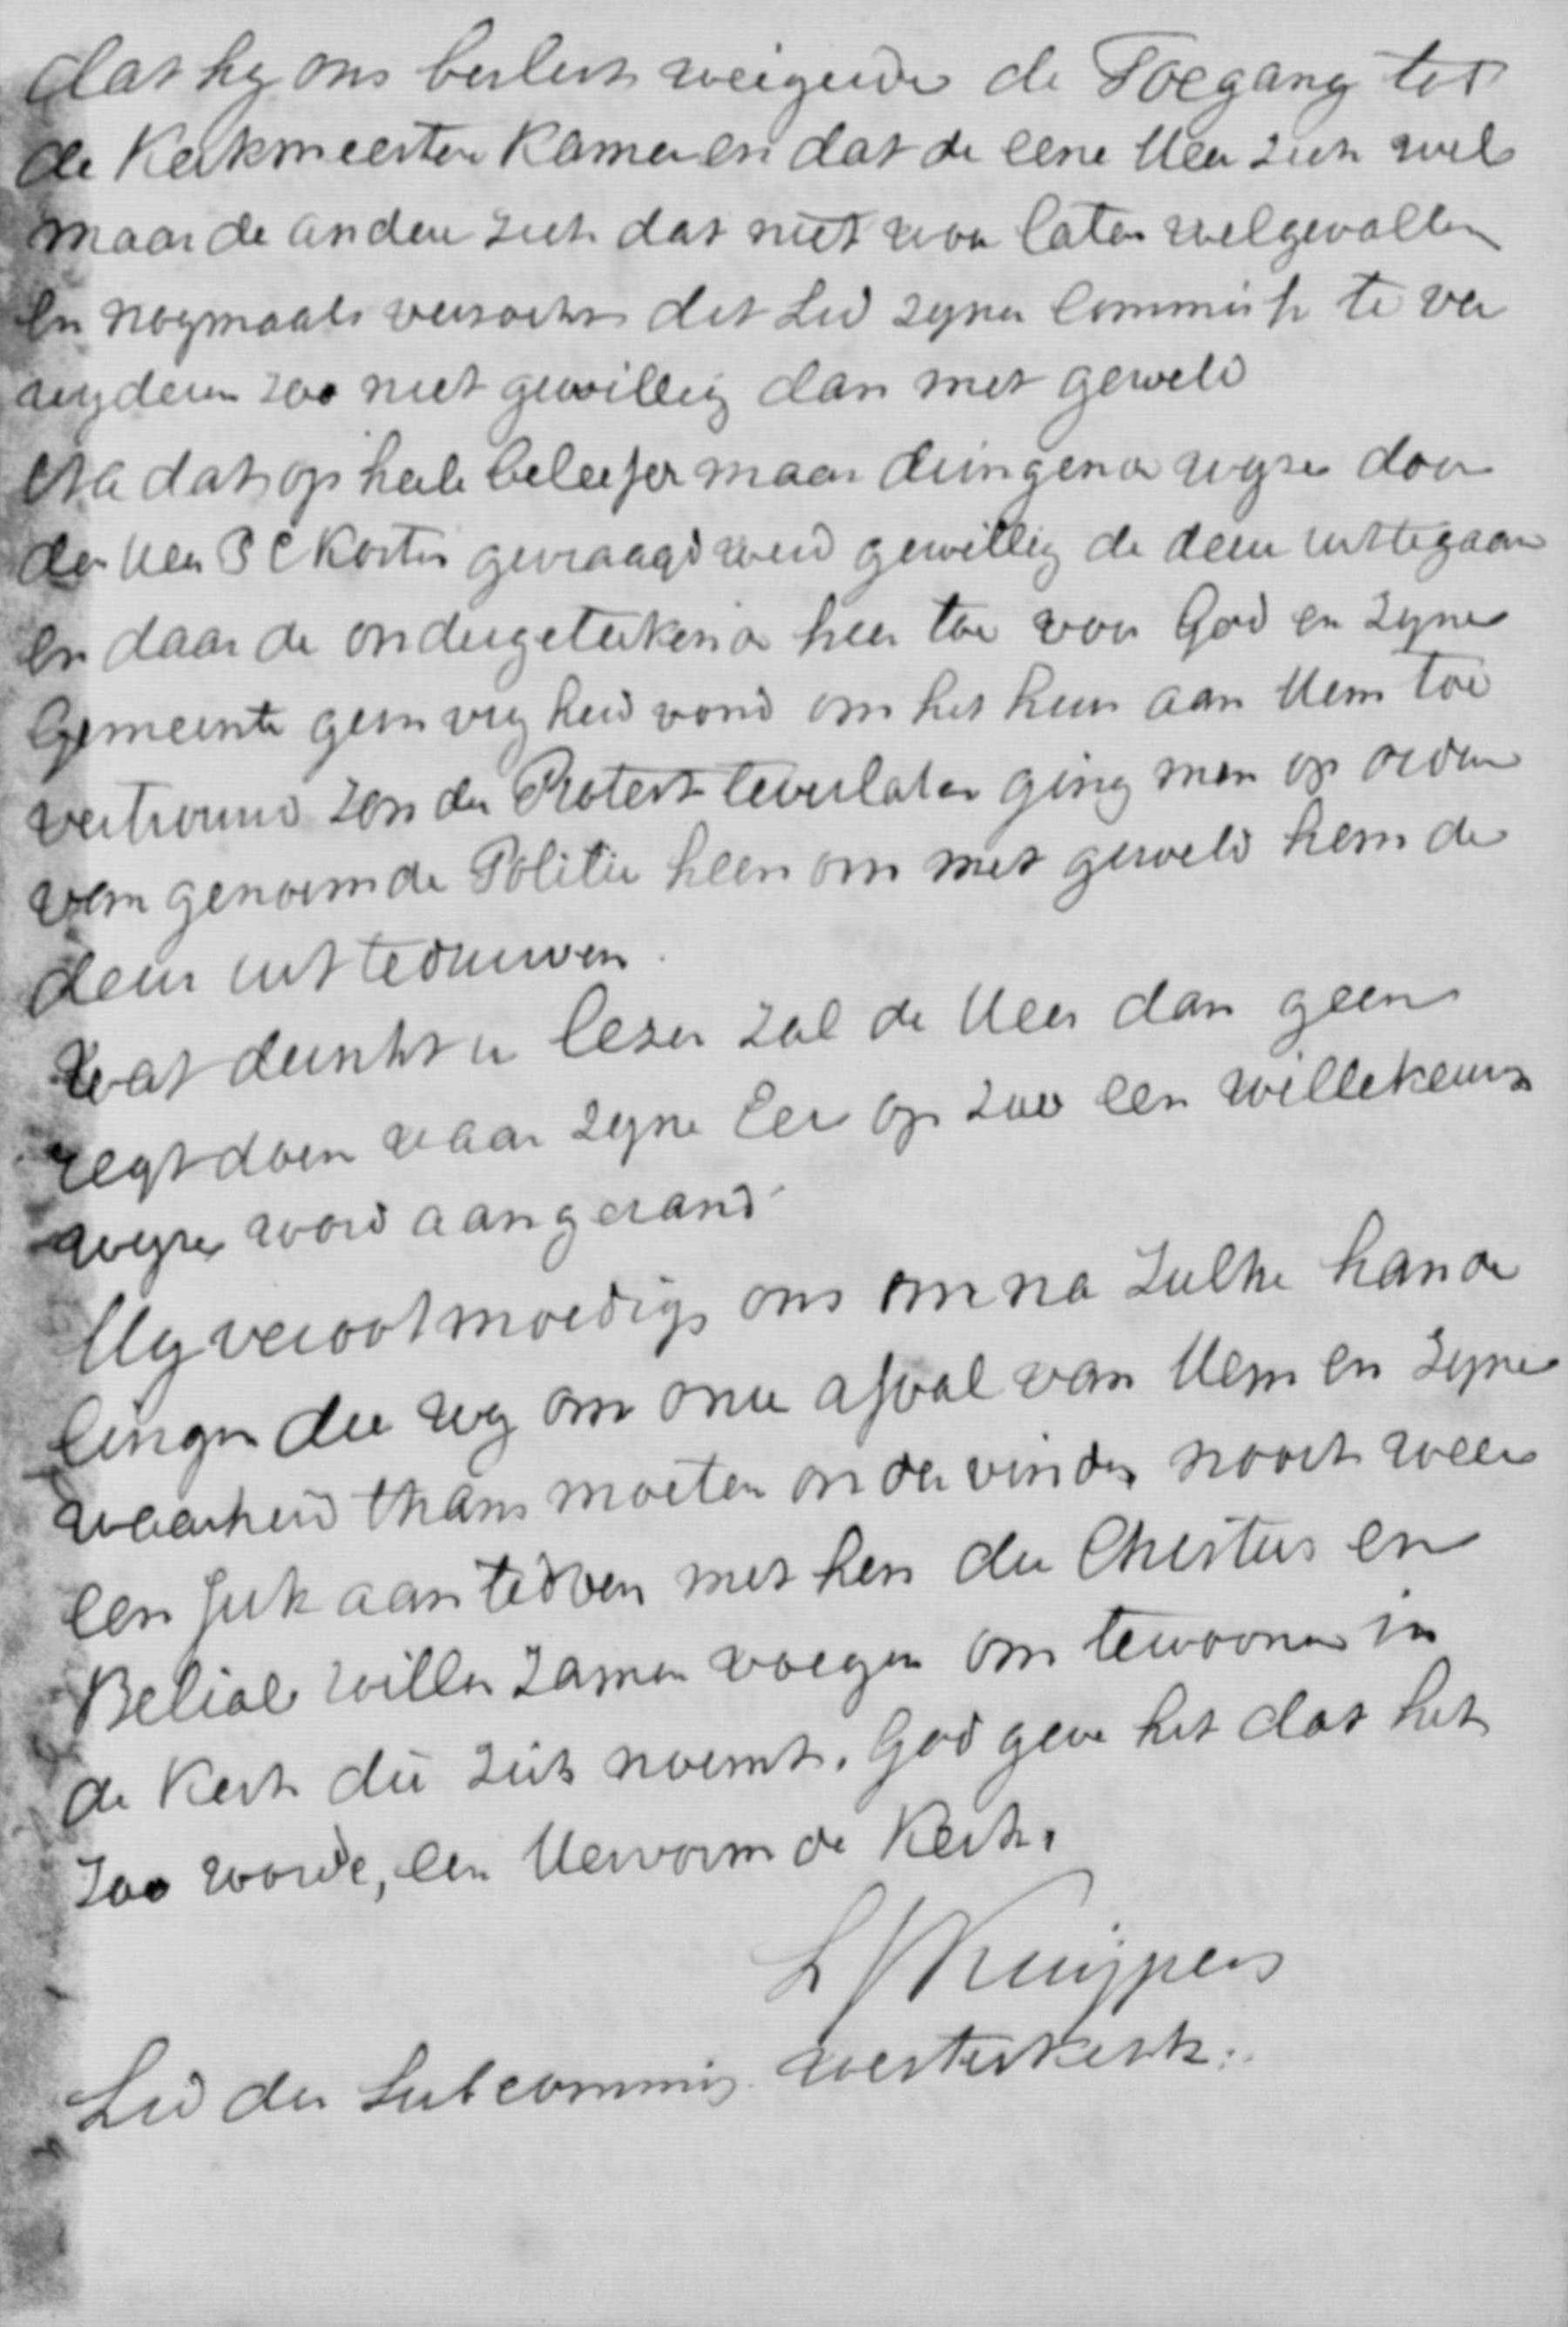 dat hy ons beslist weigerde de Toegang tot
de Kerkmeesten Kamer en dat de eene Heer zich wel
maar de andere zich dat niet wou laten welgevallen
en nogmaals versocht dit Lid zyner Commissie te ver
wyderen zoo niet gewillig dan met geweld
Na dat op heele beleefde maar dringende wyse door
den Heer P C Koster gevraagd werd gewillig de deur uittegaan
en daar de ondergetekende hier toe voor God en zyne
Gemeente geen vryheid vond om het hun aan Hem toe
vertrouwd zonder Protest teverlaten ging men op orden
van genoemde Politie heen om met geweld hem de
deur uit teduuwen.
Wat dunkt u lezer zal de Heer dan geen
regt doen waar zyne Eer op zoo een willekeurige
wyse word aangerand
Hy verootmoedige ons om na zulke hande
lingen die wy om onse afval van Hem en zyne
waarheid thans moeten ondervinden nooit weer
een juk aan tedoen met hen die Christus en
Belial willen zamen voegen om tewoonen in
de Kerk die zich noemt. God geve het dat het
zoo worde, een Hervormde Kerk.
L J Kuijpers
Lid der Subcommis. Westerkerk.